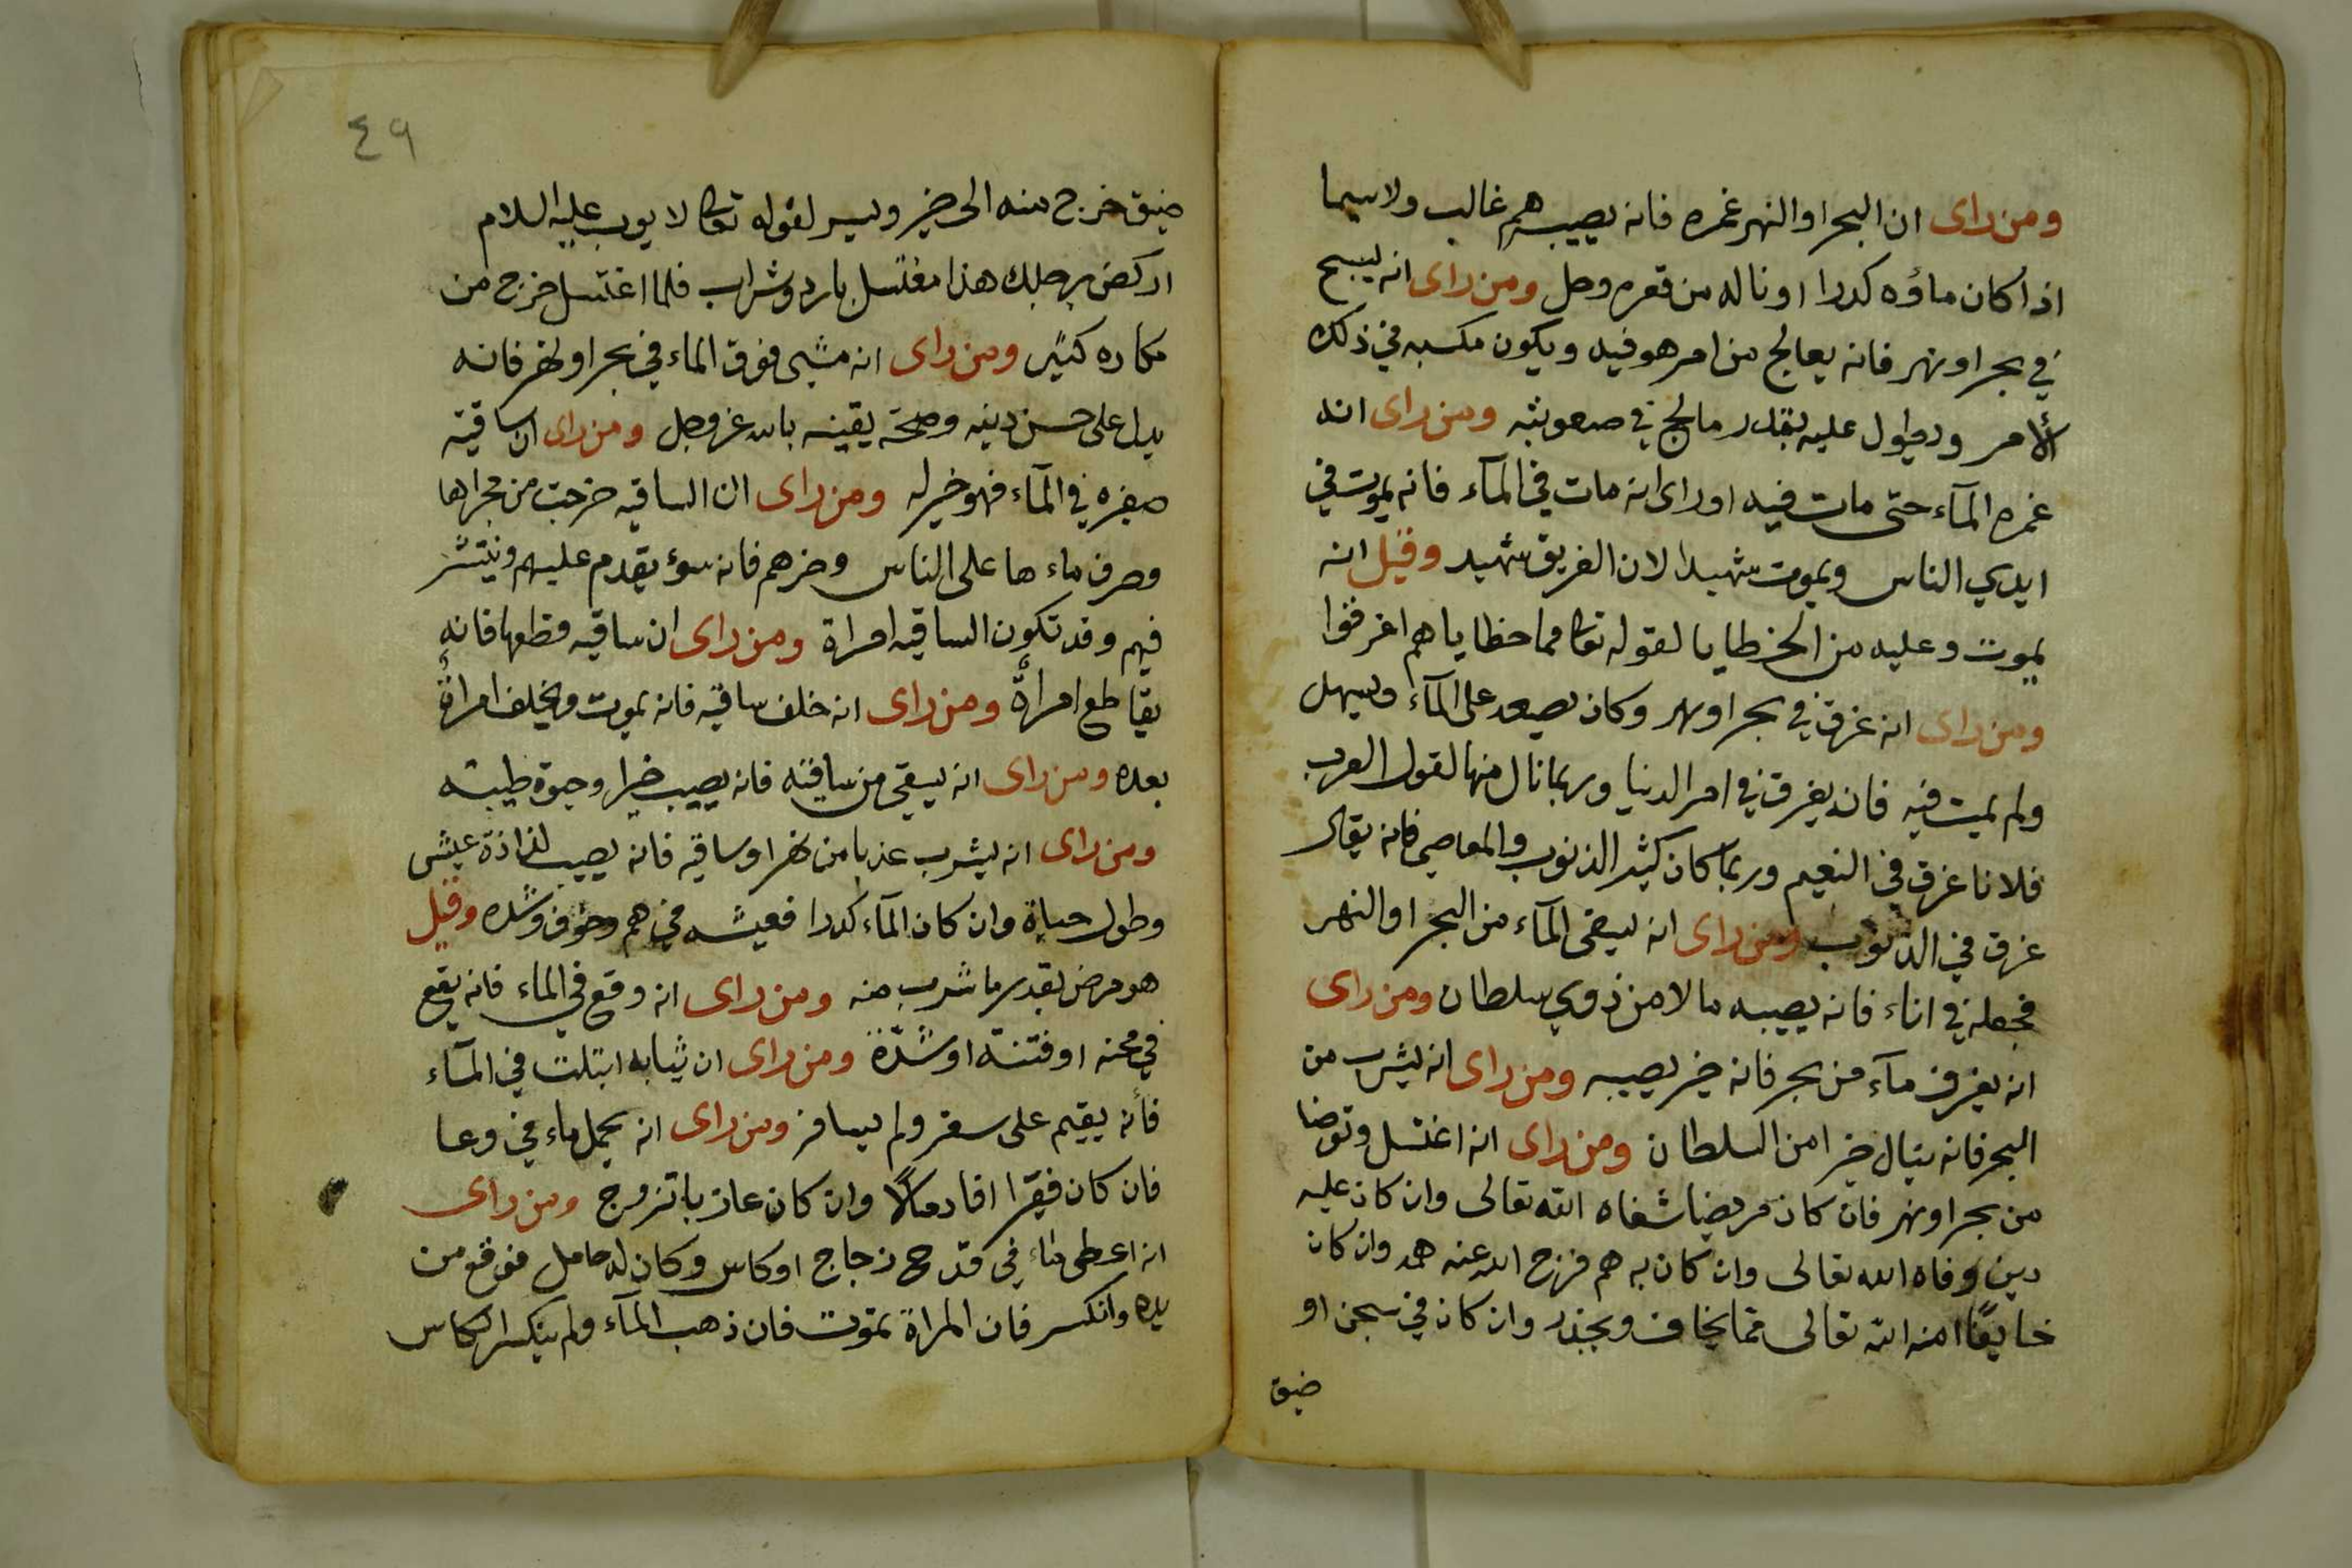 ومن راى ان البحر او النهر غمره فانه يصيبه هم غالب ولاسيما
اذا كان ماؤه كدرا او ناله من قعره وحل ومن راى انه يسبح
في بحر او نهر فانه يعالج من امر هو فيه ويكون مكسبه في ذلك
الأمر ويطول عليه بقدر مالج في صعوبته ومن راى انه
غمره المآء حتى مات فيه او راى انه مات في المآء فانه يموت في
ايدي الناس ويموت شهيدا لان الغريق شهيد وقيل انه
يموت وعليه من الخطايا لقوله تعا مما خطاياهم اغرقوا
ومن راى انه غرق في بحر او نهر وكان يصعد على المآء ويسهل
ولم يمت فيه فانه يغرق في امر الدنيا وربما نال منها لقول العرب
فلانا غرق في النعيم وربما كان كثير الذنوب والمعاصي فانه يقال
غرق في الذنوب ومن راى انه يسقى المآء من البحر او النهر
فجعله في اناء فانه يصيبه مالا من ذوي سلطان ومن راى
انه يغرف مآء من بحر فانه خير يصيبه ومن راى انه يشرب من
البحر فانه ينال خيرا من السلطان ومن راى انه اغتسل وتوضا
من بحر او نهر فان كان مريضا شفاه الله تعالى وان كان عليه
دين وفاه الله تعالى وان كان به هم فرزح الله عنه همه وان كان
خايفًا امنه الله تعالى مما يخاف ويحذر وان كان في سجن او
ضيق
٤٩
ضيق خرج منه الى خير ويسر لقوله تعا لا يوب عليه السلام
اركض برجلك هذا مغتسل بارد وشراب فلما اغتسل خرج من
مكاره كثير ومن راى انه مشى فوق الماء في بحر او نهر فانه
يدل على حسن دينه وصحة يقينه بالله عز وجل ومن راى ان ساقية
صغيره في المآء فهو خير له ومن راى ان الساقيه خرجت من مجراها
وصرف ماءها على الناس وضرهم فانه سوء يقدم عليهم وينتشر
فيهم وقد تكون الساقيه امراة ومن راى ان ساقيه قطعها فانه
يقاطع امرأة ومن راى انه خلف ساقيه فانه يموت ويخلف امرأة
بعده ومن راى انه يسقى من ساقيته فانه يصيب خيرا وحيوة طيبة
ومن راى انه يشرب عذبا من نهر او ساقيه فانه يصيب لذاذة عيش
وطول حياة وان كان المآء كدرا فعيشه في هم وخوف وشده وقيل
هو مرض بقدر ما شرب منه ومن راى انه وقع في الماء فانه يقع
في محنه او فتنة او شدّة ومن راى ان ثيابه ابتلت في المآء
فأنه يقيم على سفر ولم يسافر ومن راى انه يحمل ماء في وعا
فان كان فقيرا افاد مالًا وان كان عازبا تزوج ومن راى
انه اعطى ماء في قدح زجاج او كاس وكان له حامل فوقع من
يده وانكسر فان المراة تموت فان ذهب المآء ولم ينكسر الكاس